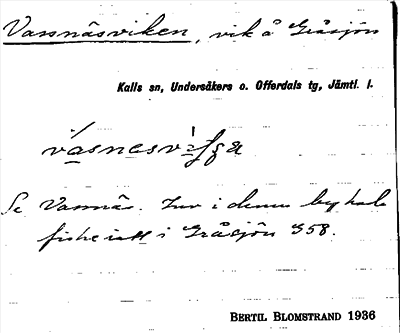 Vassnäsviken, vik å Gråsjön
Kalls sn, Undersåkers o. Offerdals tg, Jämtl. l.
Se Vassnäs. Inv i denna by hade
fiskerätt i Gråsjön S 58.
BERTIL BLOMSTRAND 1936